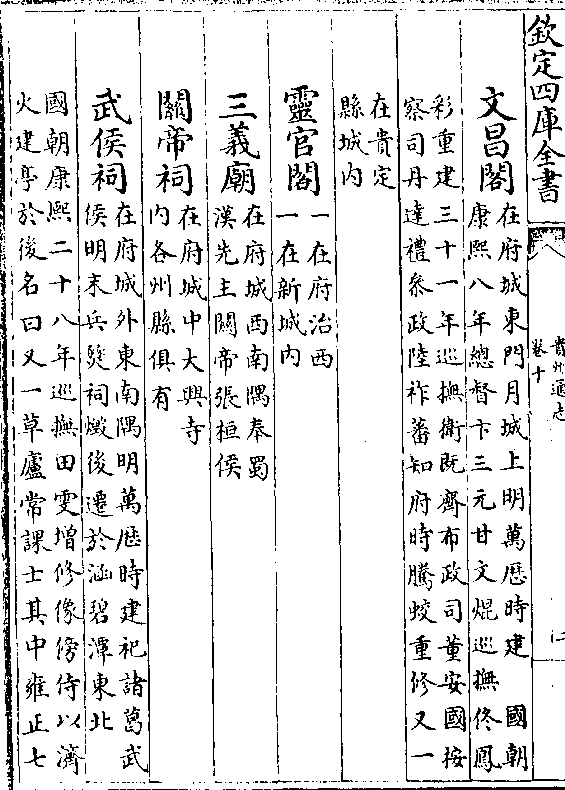 欽定四庫全書
貴州通志
卷十
文昌閣在府城東門月城上明萬厯時建　國朝
康熙八年總督卞三元甘文焜巡撫佟鳳
彩重建三十一年巡撫衛既齊布政司董安國按
察司丹達禮叅政陸祚蕃知府時騰蛟重修又一
在貴定
縣城内
靈官閣一在府治西
一在新城内
三義廟在府城西南隅奉蜀
漢先主關帝張桓侯
關帝祠在府城中大興寺
内各州縣俱有
武侯祠在府城外東南隅明萬厯時建祀諸葛武
侯明末兵燹祠燬後遷於涵碧潭東北
國朝康熙二十八年巡撫田雯增修像傍侍以濟
火建亭於後名曰又一草廬常課士其中雍正七